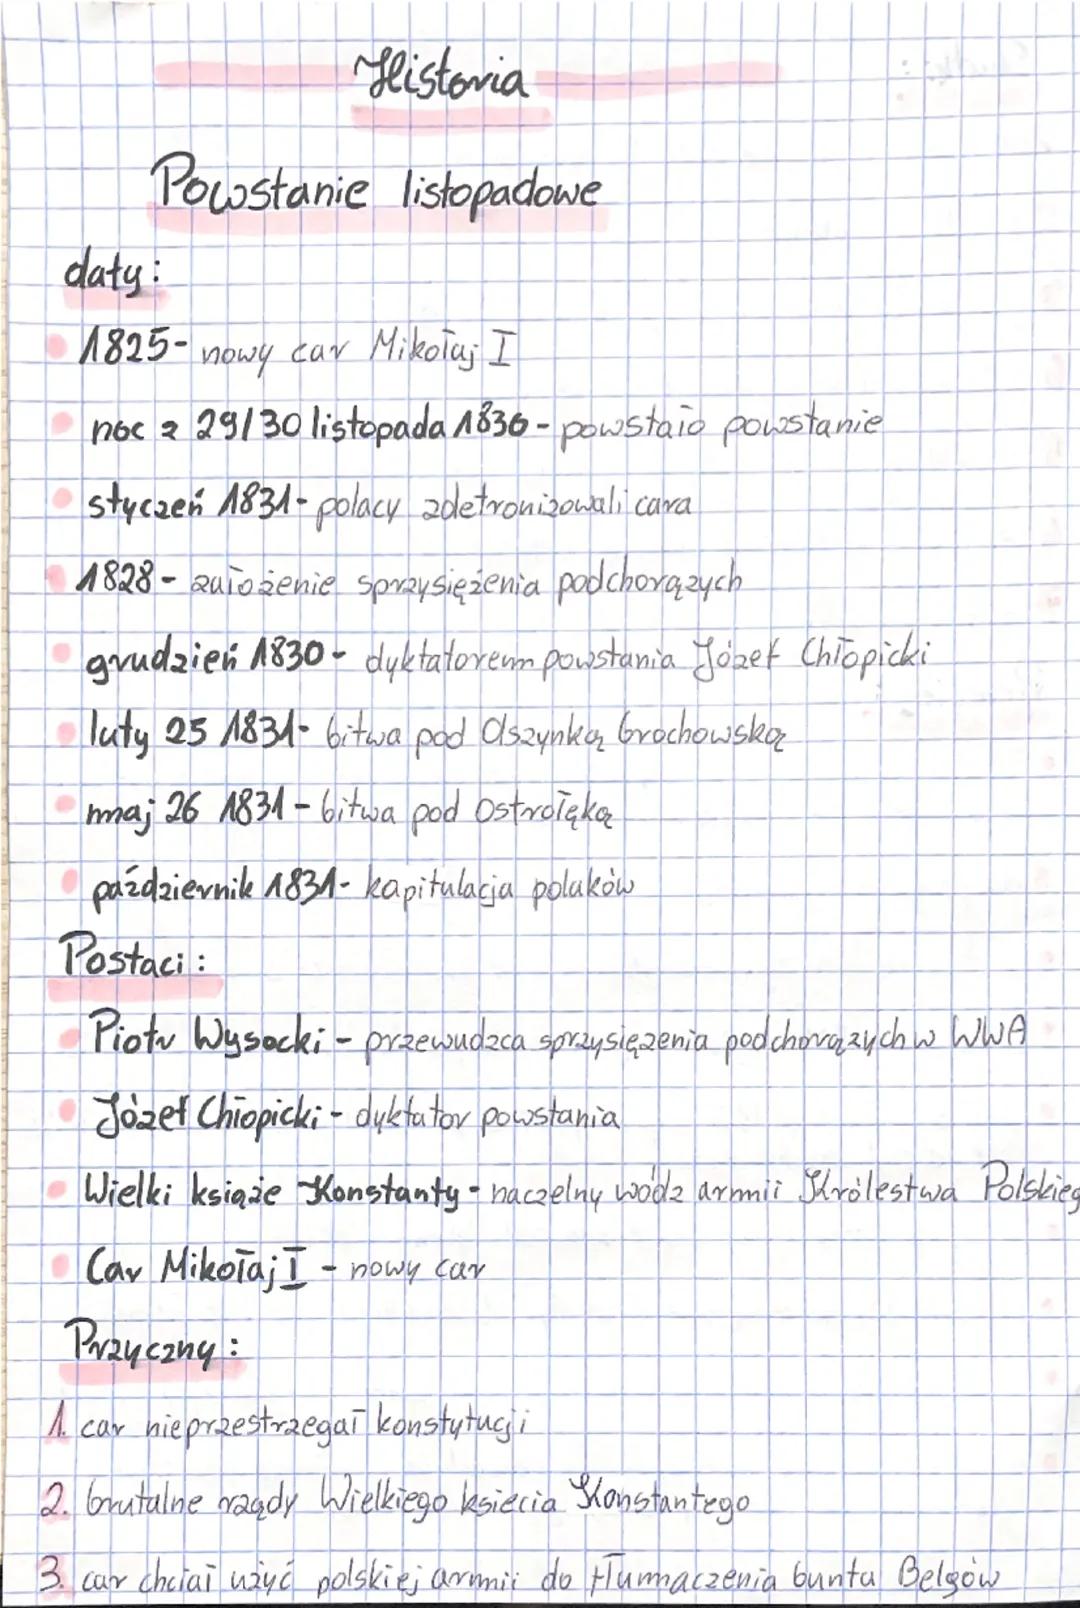 Historia
Powstanie listopadowe
daty:
1825- nowy car Mikołaj I
noc z 29/30 listopada 1830 - powstało powstanie
styczeń 1831- polacy zdetronizowali cara
1828 - założenie sprzysiężenia podchorązych
grudzień 1830 - dyktatorem powstania Józef Chłopicki
luty 25 1831- bitwa pod Olszynką Grochowską
maj 26 1831 - bitwa pod Ostrołęką
październik 1831- kapitulacja polaków
Postaci:
Piotr Wysocki - przewudzca sprzysięzenia podchorązych w WWA
Józef Chłopicki - dyktator powstania
Wielki książe Konstanty - naczelny wódz armii Królestwa Polskieg
Car Mikołaj I - nowy car
Przyczny:
1. car nieprzestrzegał konstytucji
2. brutalne rządy Wielkiego ksiecia Konstantego
3. car chciał użyć polskiej armii do tłumaczenia buntu Belgów